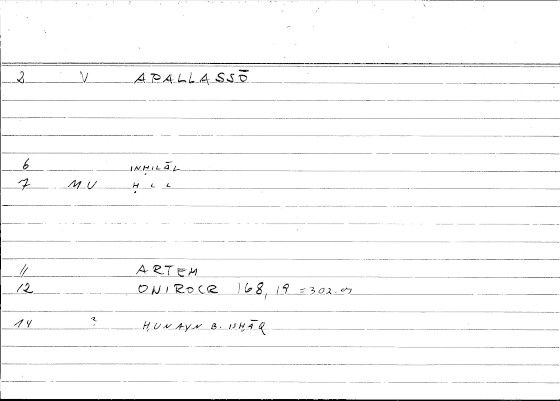 2 V APALLASSŌ
6 INḤILĀL
7 M.U ḤLL
11 ARTEM
12 ONIROCR 168, 19 = 302.
14 ? ḤUNAYN B. ISḤĀQ